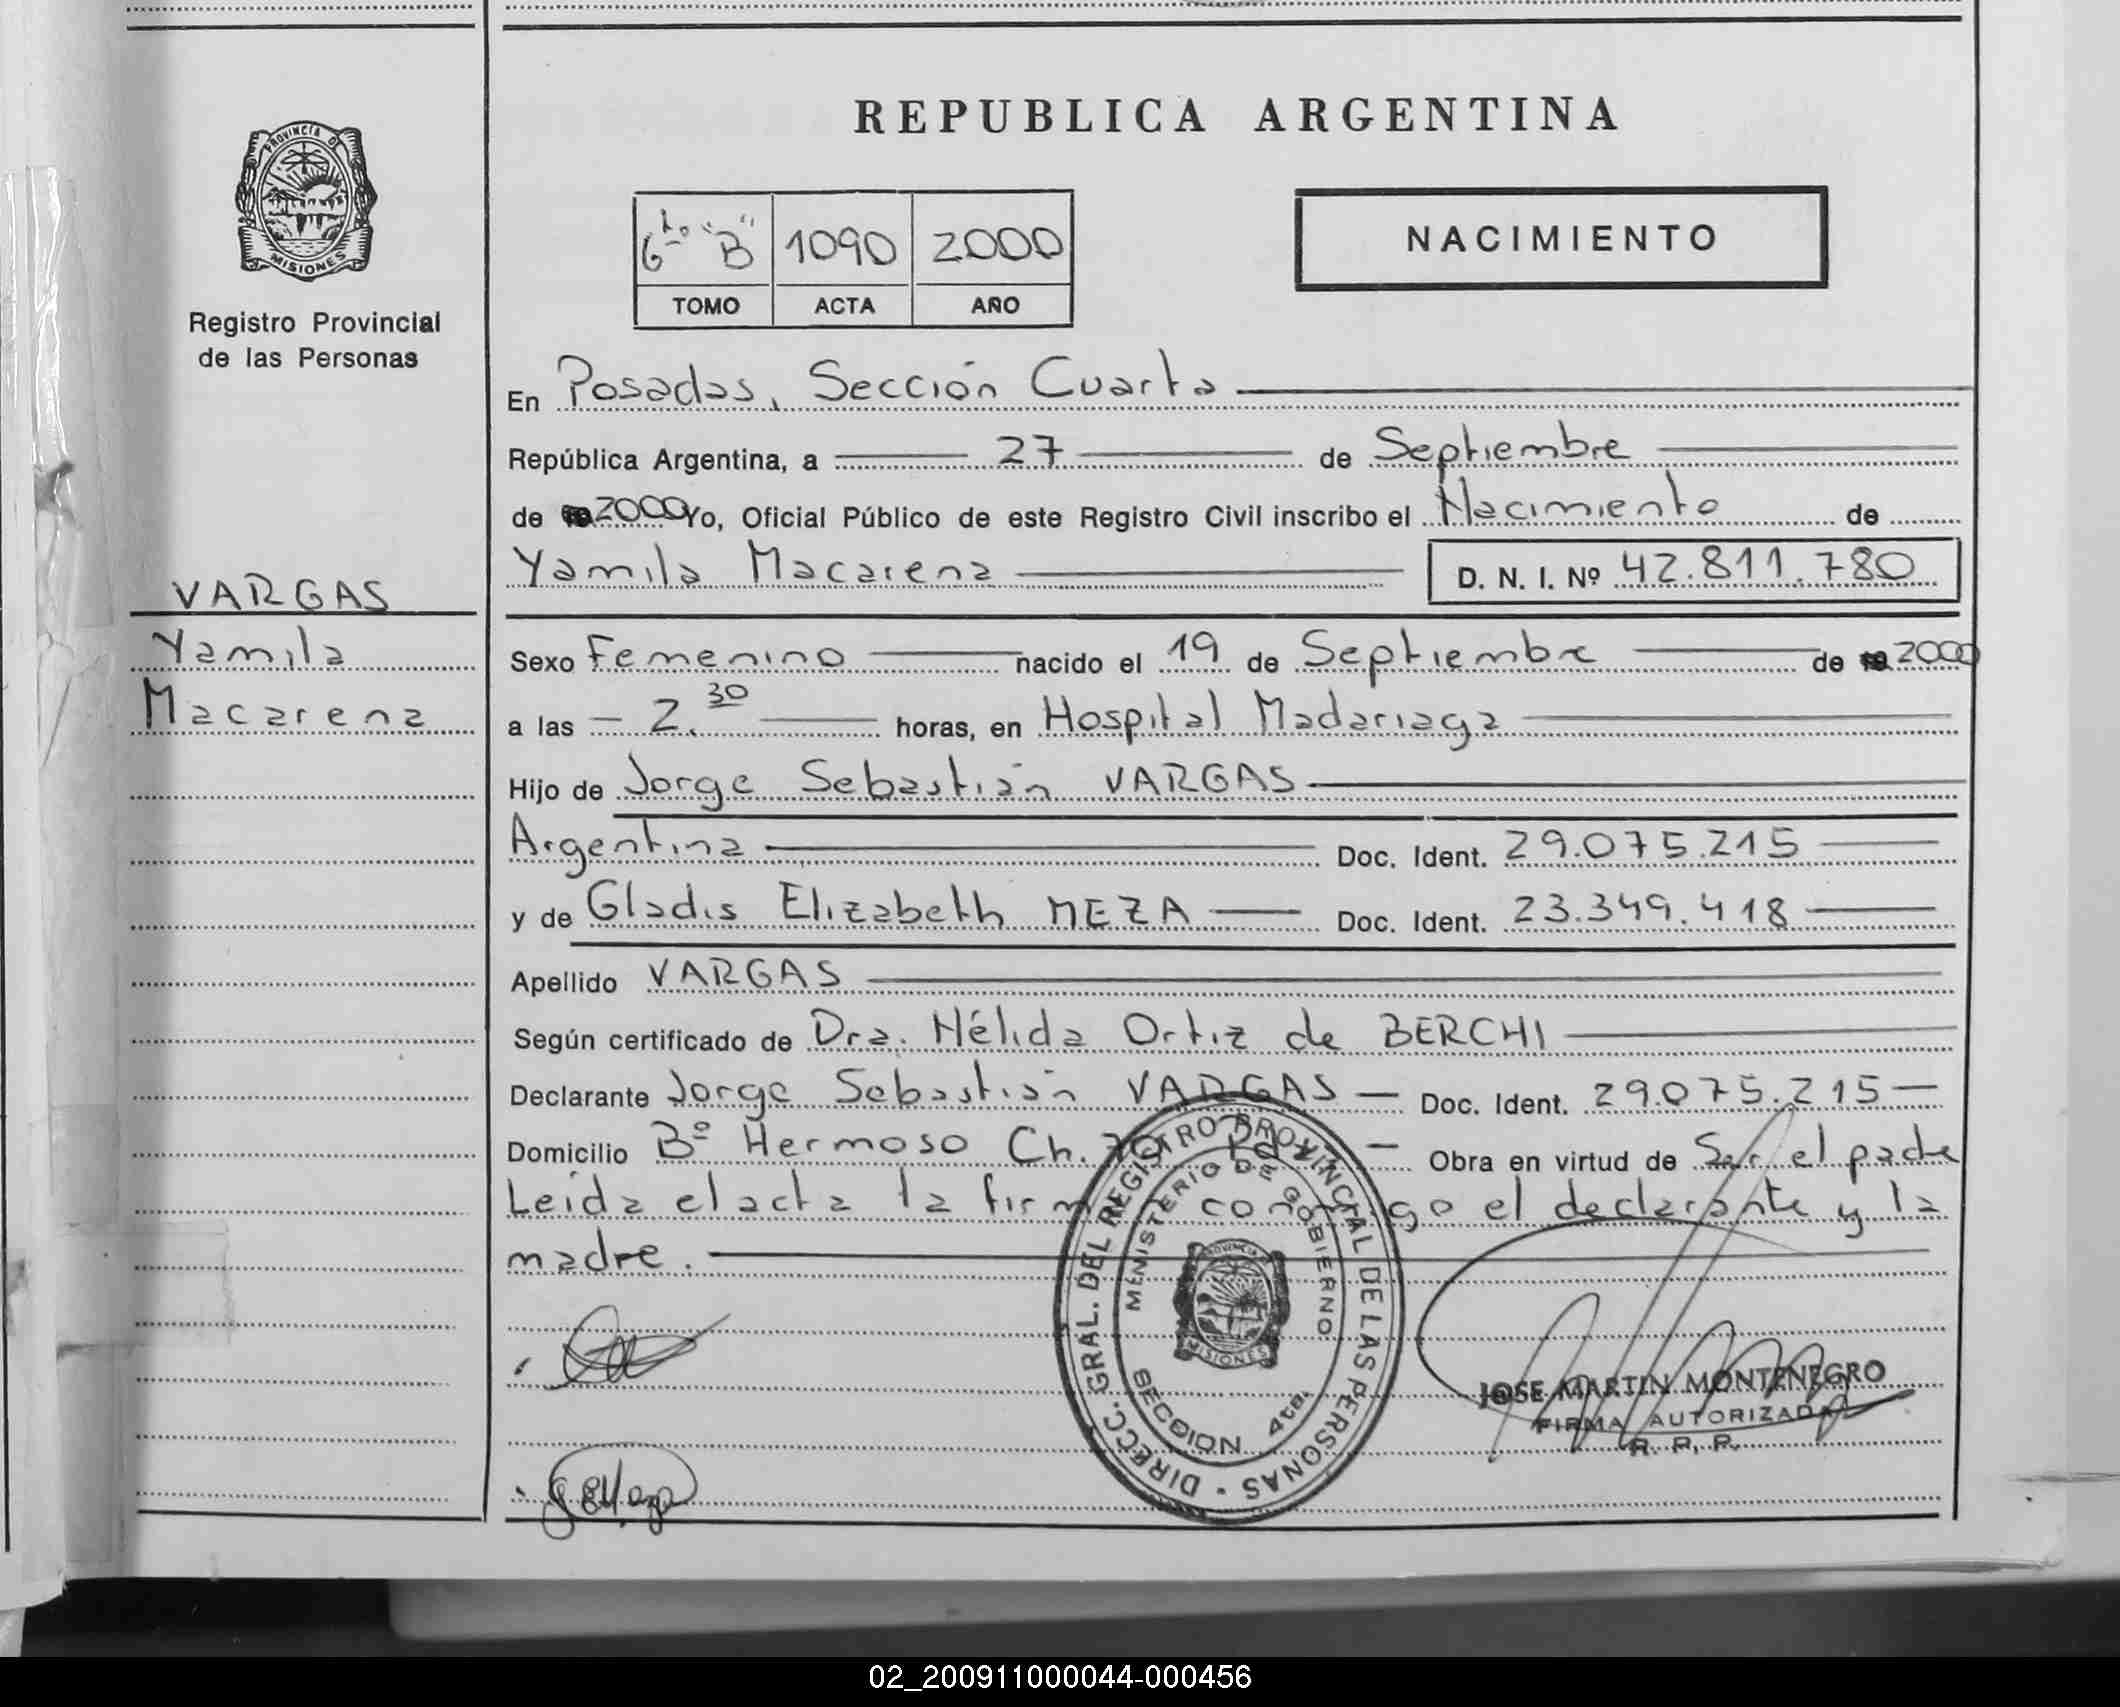 REPUBLICA ARGENTINA
PROVINCIA DE
MISIONES
Registro Provincial
de las Personas
6to "B" 1090 2000
TOMO ACTA AÑO
NACIMIENTO
VARGAS
Yamila
Macarena
En Posadas, Sección Cuarta
República Argentina, a 27 de Septiembre
de 2000 Yo, Oficial Público de este Registro Civil inscribo el Nacimiento de
Yamila Macarena D. N. I. Nº 42.811.780
Sexo Femenino nacido el 19 de Septiembre de 2000
a las 2.30 horas, en Hospital Madariaga
Hijo de Jorge Sebastián VARGAS
Argentina Doc. Ident. 29.075.215
y de Gladis Elizabeth MEZA Doc. Ident. 23.349.418
Apellido VARGAS
Según certificado de Dra. Nélida Ortiz de BERCHI
Declarante Jorge Sebastián VARGAS Doc. Ident. 29.075.215
Domicilio Bº Hermoso Ch. Obra en virtud de Ser el padre
Leída el acta la firman conmigo el declarante y la
madre.
DIRECC. GRAL. DEL REGISTRO PROVINCIAL DE LAS PERSONAS
MINISTERIO DE GOBIERNO
PROVINCIA
MISIONES
SECCION 4ta.
JOSE MARTIN MONTENEGRO
FIRMA AUTORIZADA
R. P. P.
02_200911000044-000456